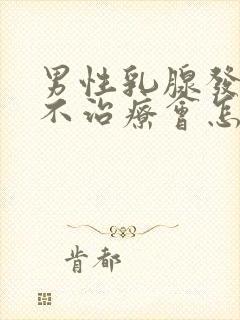 男性乳腺發
不治療會怎
肯都